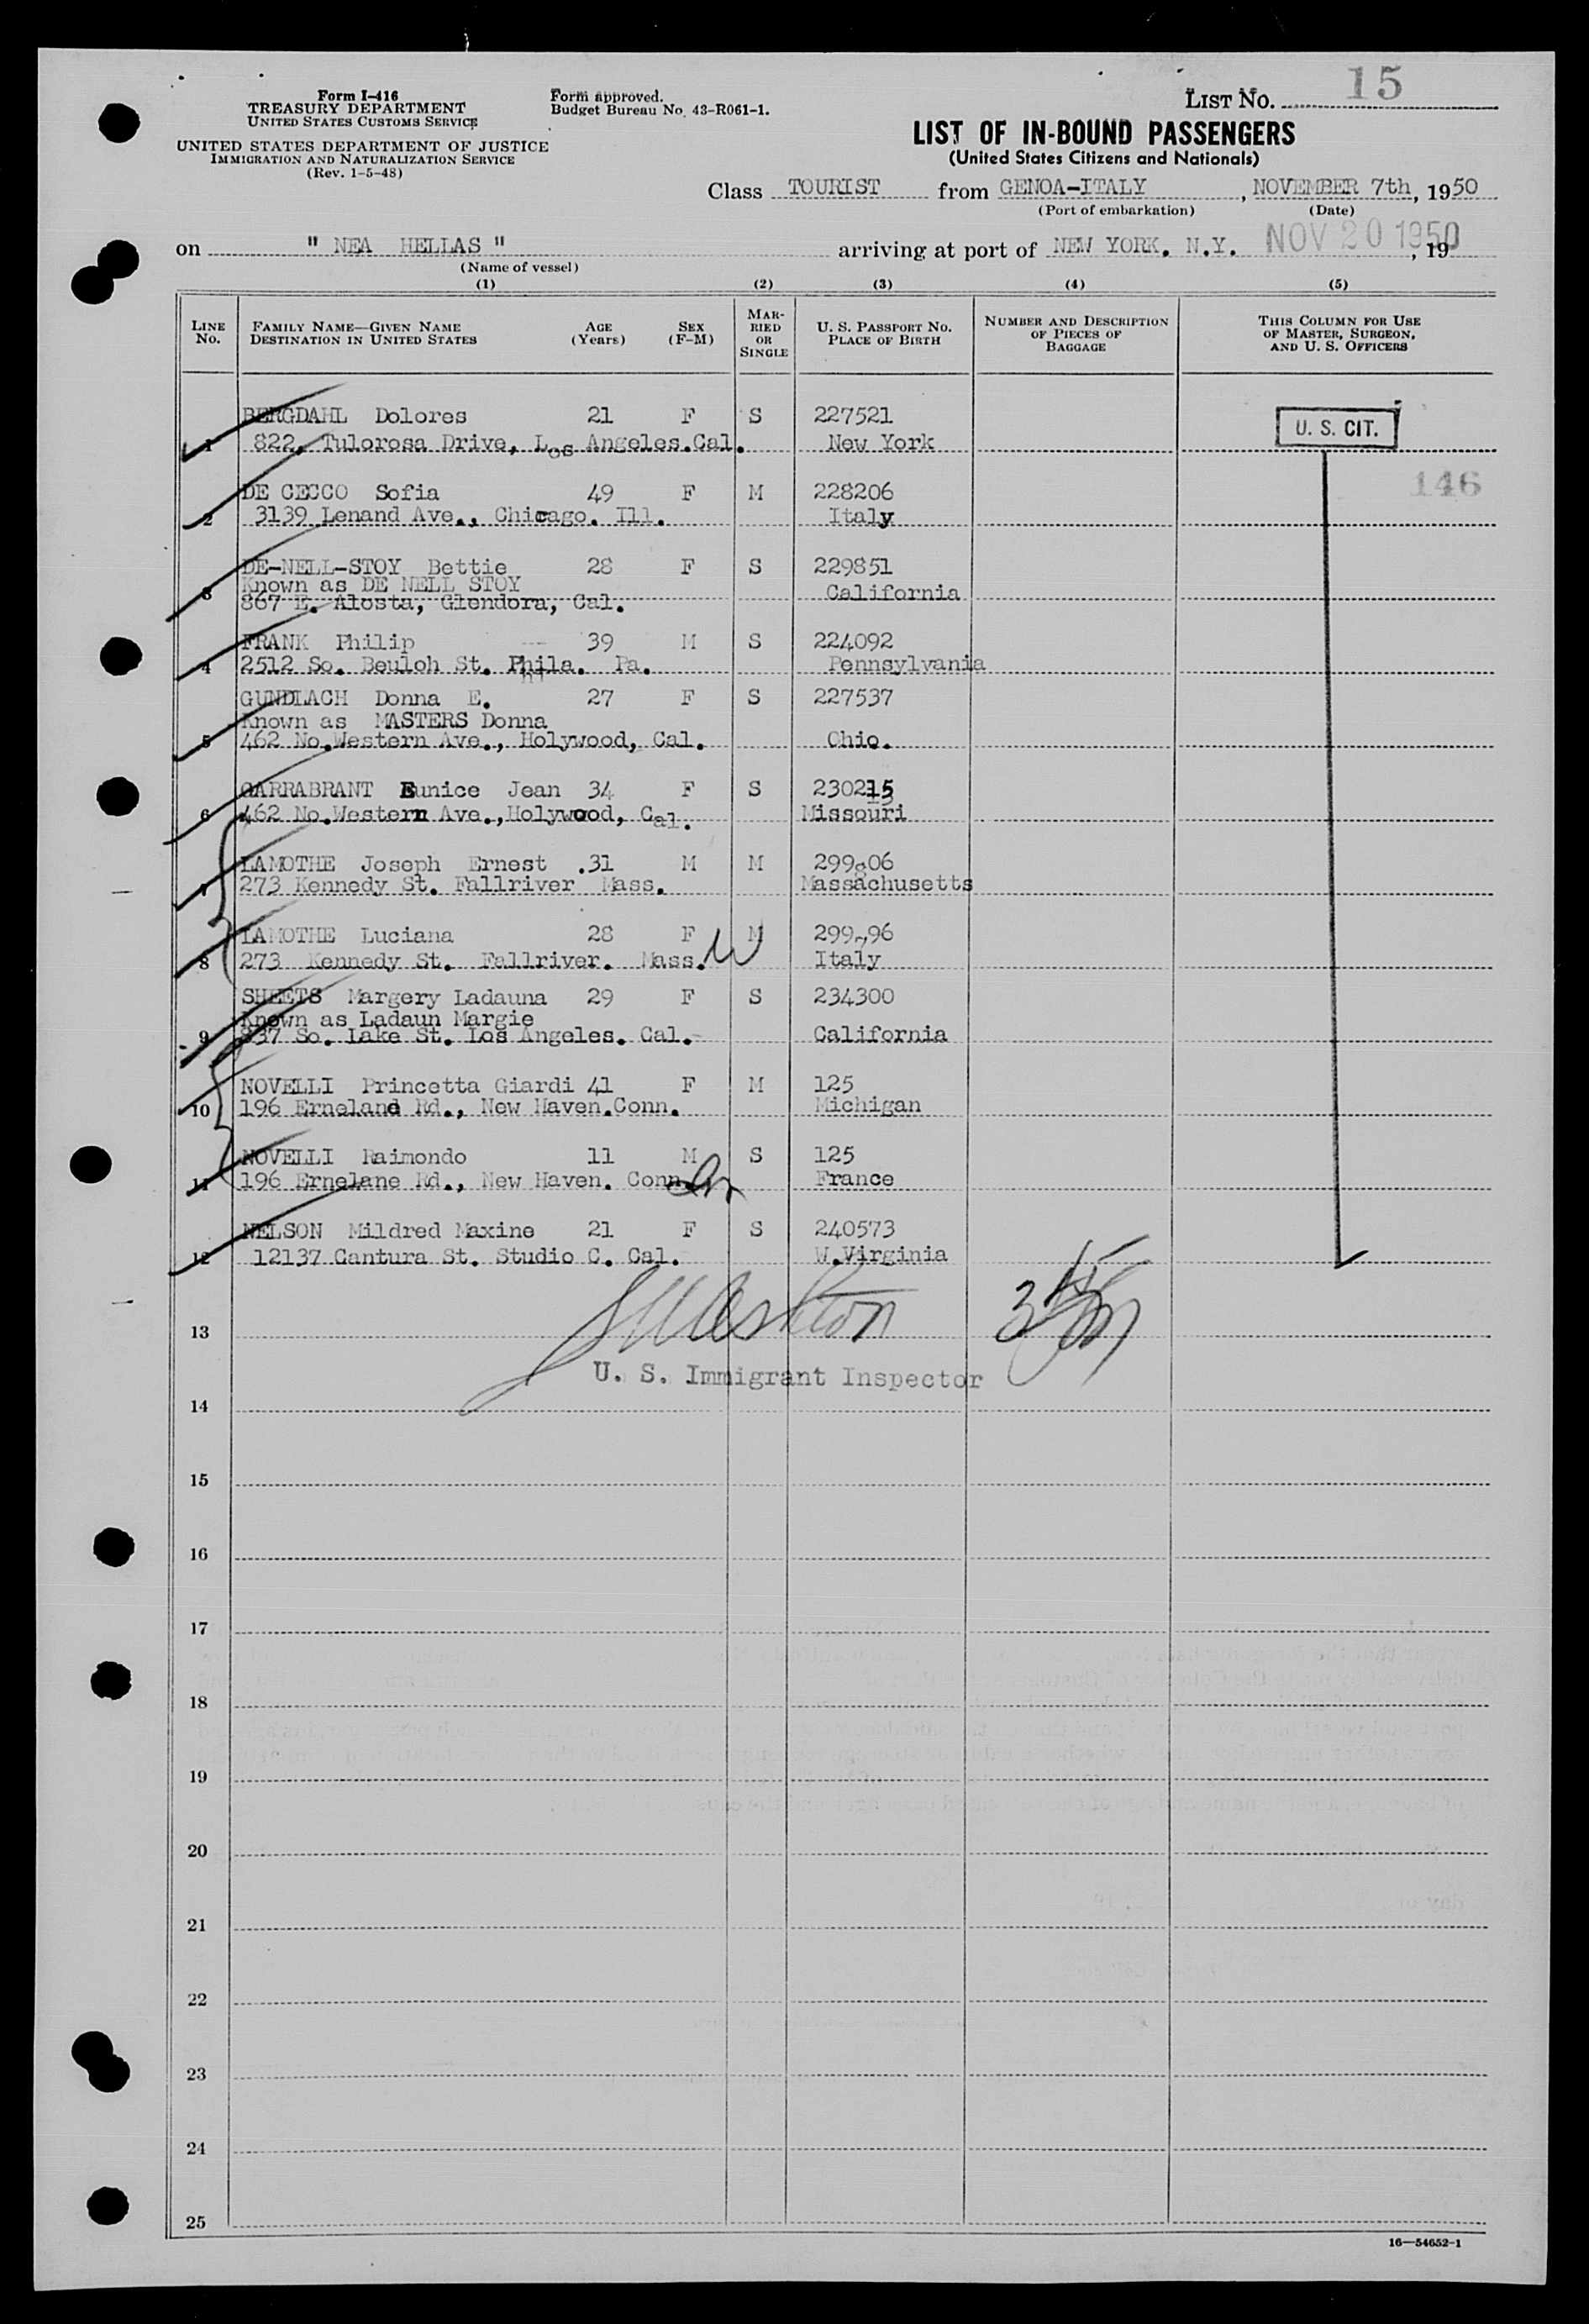 Form I-416
TREASURY DEPARTMENT
UNITED STATES CUSTOMS SERVICE
UNITED STATES DEPARTMENT OF JUSTICE
IMMIGRATION AND NATURALIZATION SERVICE
(Rev. 1-5-48)
Form approved.
Budget Bureau No. 43-R061-1.
LIST NO. 15
LIST OF IN-BOUND PASSENGERS
(United States Citizens and Nationals)
Class TOURIST from GENOA-ITALY, NOVEMBER 7th, 1950
(Port of embarkation) (Date)
on " NEA HELLAS " arriving at port of NEW YORK. N.Y. NOV 20 1950, 19
(Name of vessel)
(1) (2) (3) (4) (5)
LINE No. FAMILY NAME—GIVEN NAME DESTINATION IN UNITED STATES AGE (Years) SEX (F-M) MARRIED OR SINGLE U. S. PASSPORT NO. PLACE OF BIRTH NUMBER AND DESCRIPTION OF PIECES OF BAGGAGE THIS COLUMN FOR USE OF MASTER, SURGEON, AND U. S. OFFICERS
BERGDAHL Dolores 21 F S 227521 U. S. CIT.
1 822, Tulorosa Drive, Los Angeles.Cal. New York
DE CECCO Sofia 49 F M 228206 146
2 3139 Lenand Ave., Chicago. Ill. Italy
DE-NELL-STOY Bettie 28 F S 229851
Known as DE NELL STOY
3 867 E. Alosta, Glendora, Cal. California
FRANK Philip --- 39 M S 224092
4 2512 So. Beuloh St. Phila. Pa. Pennsylvania
GUNDLACH Donna E. 27 F S 227537
Known as MASTERS Donna
5 462 No.Western Ave., Holywood, Cal. Ohio.
GARRABRANT Eunice Jean 34 F S 230215
6 462 No.Western Ave.,Holywood, Cal. Missouri
LAMOTHE Joseph Ernest .31 M M 299806
7 273 Kennedy St. Fallriver Mass. Massachusetts
LAMOTHE Luciana 28 F M 299796
8 273 Kennedy St. Fallriver. Mass. Italy
SHEETS Margery Ladauna 29 F S 234300
Known as Ladaun Margie
9 837 So. Lake St. Los Angeles. Cal.- California
NOVELLI Princetta Giardi 41 F M 125
10 196 Erneland Rd., New Haven.Conn. Michigan
NOVELLI Raimondo 11 M S 125
11 196 Ernelane Rd., New Haven. Conn France
NELSON Mildred Maxine 21 F S 240573
12 12137 Cantura St. Studio C. Cal. W.Virginia
13
U. S. Immigrant Inspector
14
15
16
17
18
19
20
21
22
23
24
25
16—54652-1